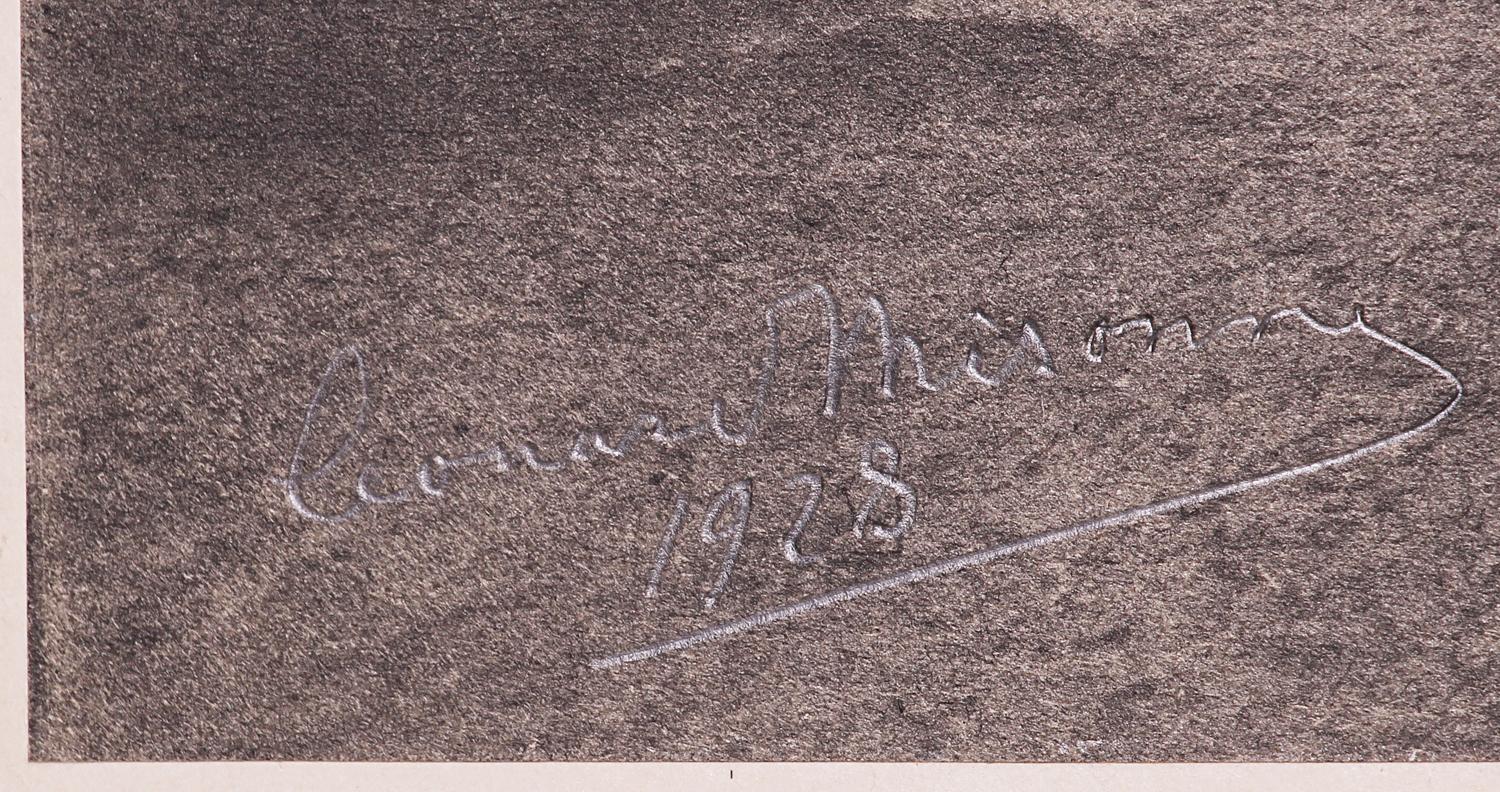 Leonard Misonne
1928